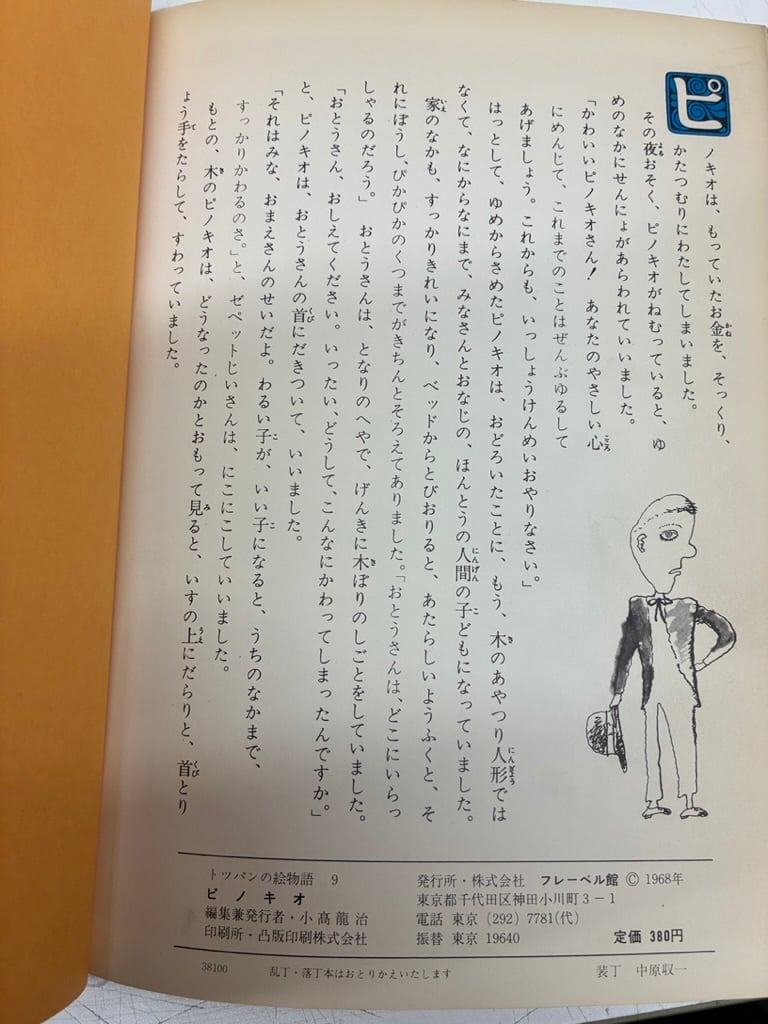 ピノキオは、もっていたお金を、そっくり、
かたつむりにわたしてしまいました。
その夜おそく、ピノキオがねむっていると、ゆ
めのなかにせんにょがあらわれていいました。
「かわいいピノキオさん！　あなたのやさしい心
にめんじて、これまでのことはぜんぶゆるして
あげましょう。これからも、いっしょうけんめいおやりなさい。」
はっとして、ゆめからさめたピノキオは、おどろいたことに、もう、木のあやつり人形では
なくて、なにからなにまで、みなさんとおなじの、ほんとうの人間の子どもになっていました。
家のなかも、すっかりきれいになり、ベッドからとびおりると、あたらしいようふくと、そ
れにぼうし、ぴかぴかのくつまでがきちんとそろえてありました。「おとうさんは、どこにいらっ
しゃるのだろう。」　おとうさんは、となりのへやで、げんきに木ぼりのしごとをしていました。
「おとうさん、おしえてください。いったい、どうして、こんなにかわってしまったんですか。」
と、ピノキオは、おとうさんの首にだきついて、いいました。
「それはみな、おまえさんのせいだよ。わるい子が、いい子になると、うちのなかまで、
すっかりかわるのさ。」と、ゼペットじいさんは、にこにこしていいました。
もとの、木のピノキオは、どうなったのかとおもって見ると、いすの上にだらりと、首とり
ょう手をたらして、すわっていました。
トッパンの絵物語　9
ピノキオ
編集兼発行者・小髙龍治
印刷所・凸版印刷株式会社
発行所・株式会社　フレーベル館 © 1968年
東京都千代田区神田小川町3－1
電話 東京 (292) 7781(代)
振替 東京 19640　定価 380円
38100　乱丁・落丁本はおとりかえいたします　装丁　中原収一